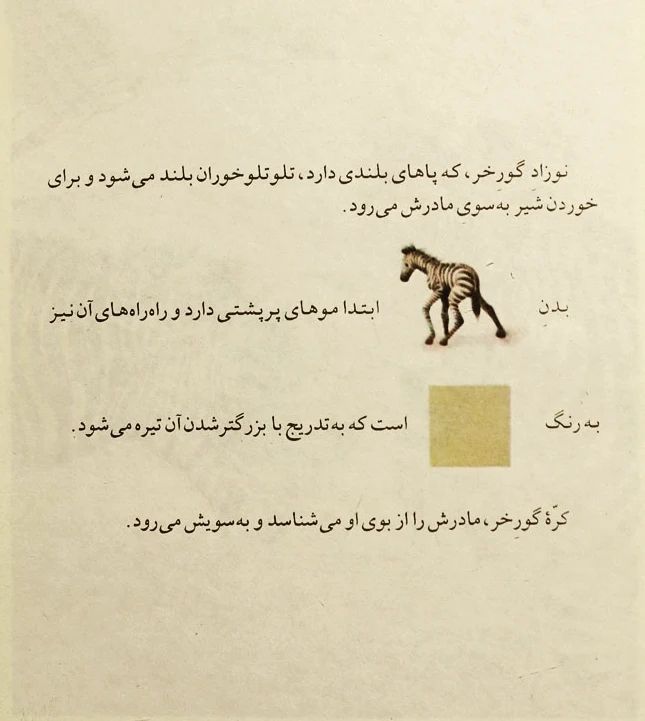 نوزادِ گورخر، که پاهای بلندی دارد، تلوتلوخوران بلند می‌شود و برای
خوردن شیر به‌سویِ مادرش می‌رود.
بدنِ ابتدا موهای پرپشتی دارد و راه‌راه‌های آن نیز
به رنگ است که به‌تدریج با بزرگترشدن آن تیره می‌شود.
کرّهٔ گورخر، مادرش را از بوی او می‌شناسد و به‌سویش می‌رود.